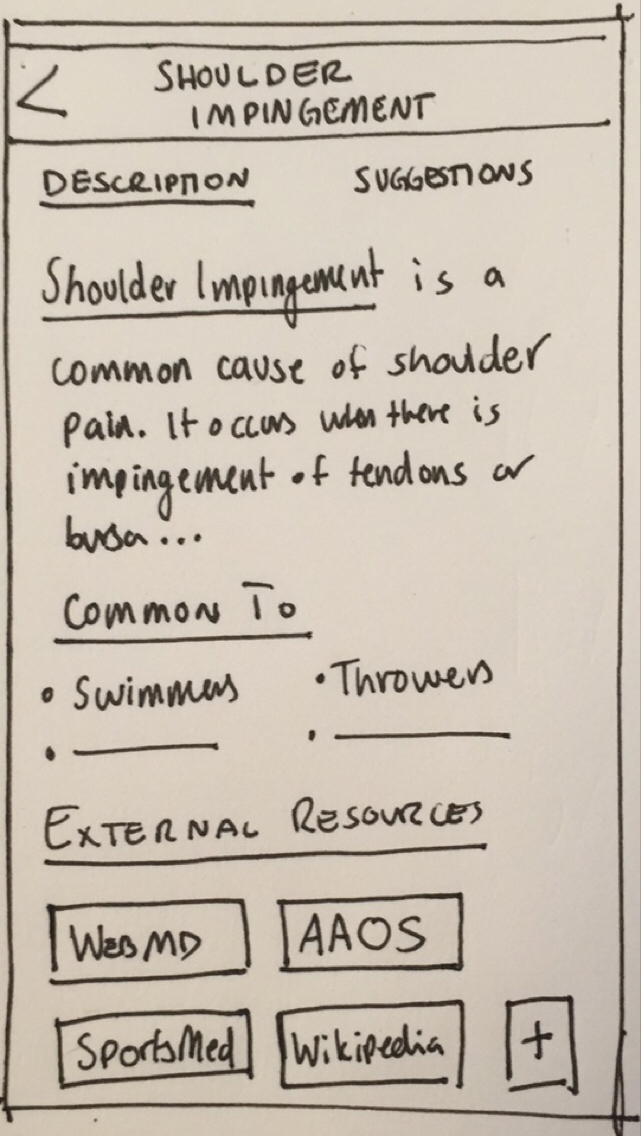 <
SHOULDER
IMPINGEMENT
DESCRIPTION SUGGESTIONS
Shoulder Impingement is a
common cause of shoulder
pain. It occurs when there is
impingement of tendons or
bursa...
Common To
• Swimmers • Throwers
• •
EXTERNAL RESOURCES
WebMD AAOS
SportsMed Wikipedia +